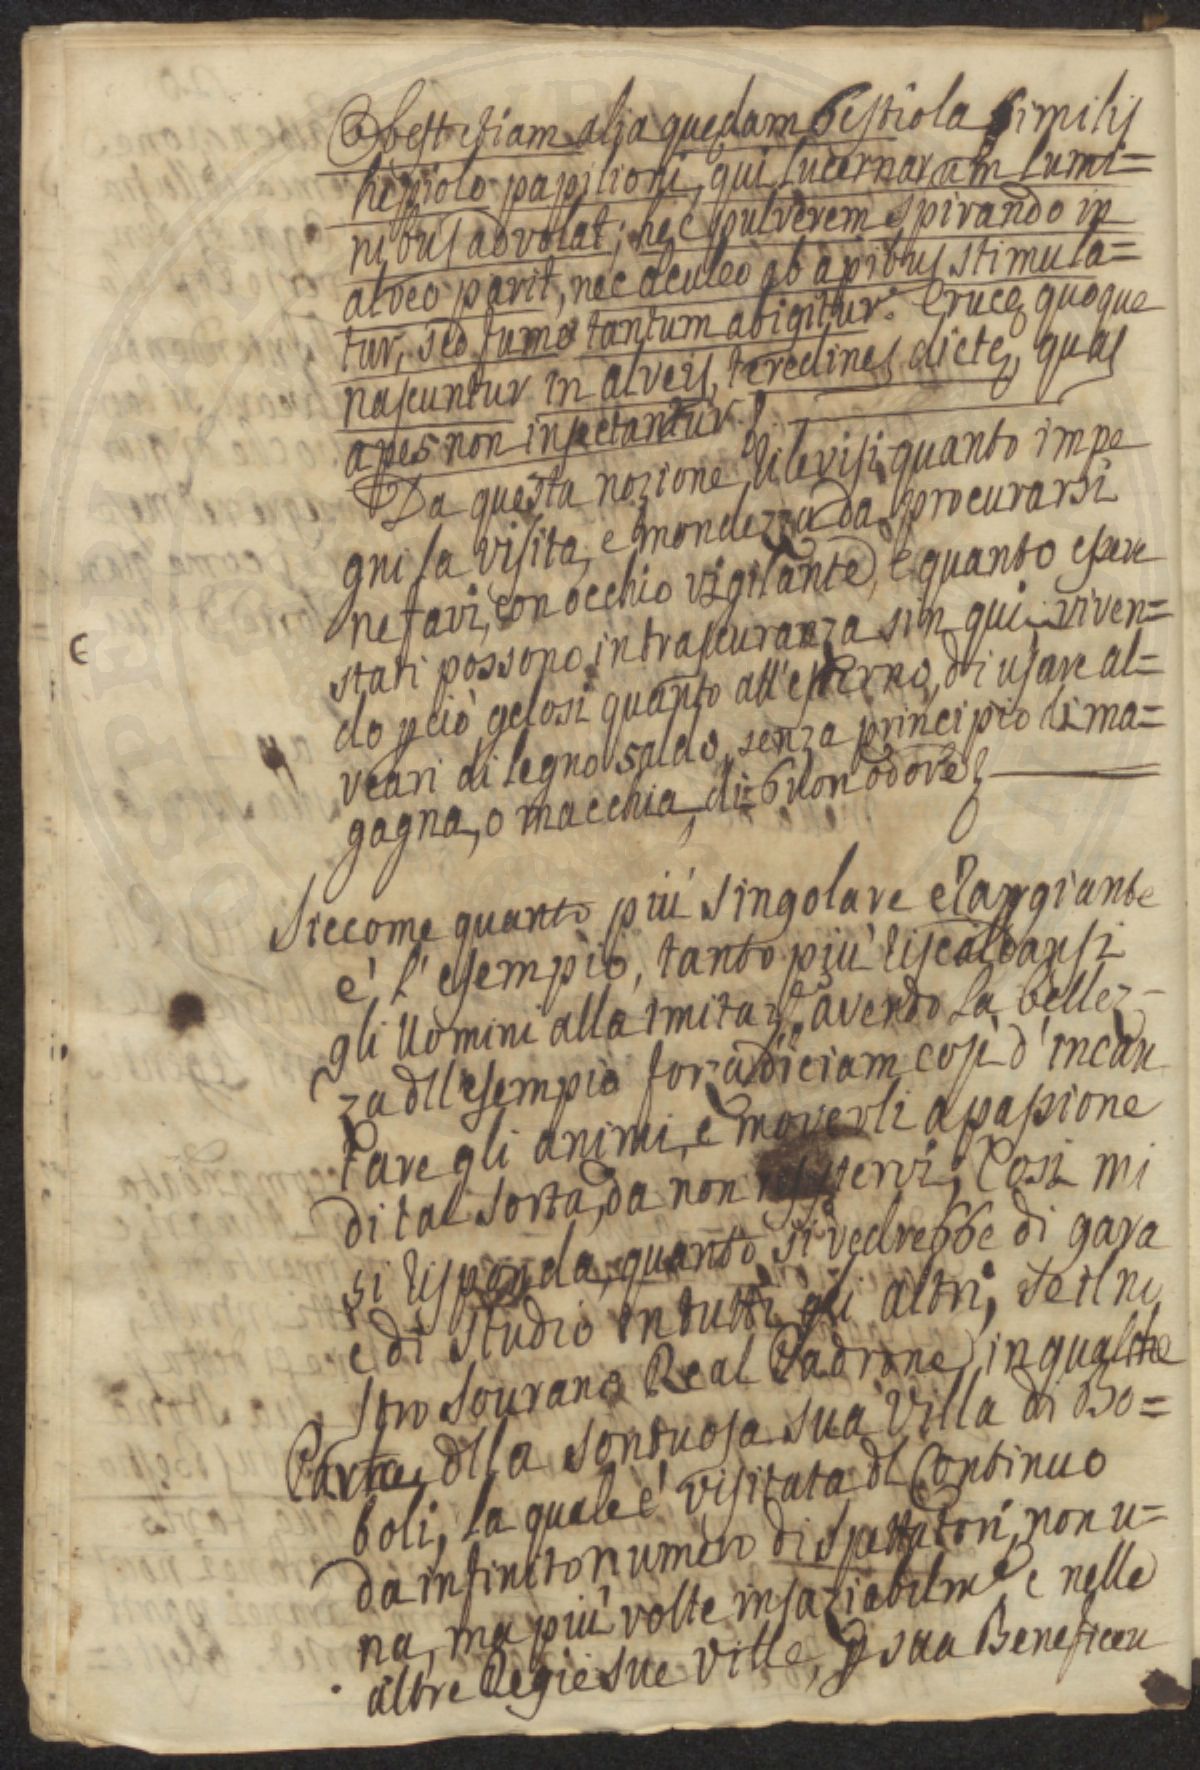 Obest etiam alia quędam bestiola similis
hępiolo papilioni, qui lucernarum lumi=
nibus advolat; hęc pulverem spirando in
alveo parit, nec aculeo ab apibus stimula=
tur, sed fumo tantum abigitur. Erucę quoque
nascuntur in alveis, teredines dictę, quas
apes non insectantur.
Da questa nozione rilevisi quanto impe
gni la visita, e mondezza da procurarsi
ne favi, con occhio vigilante, e quanto essere
stati possono in trascuranza sin qui viven=
do p ciò gelosi quanto all'esterno, di usare al=
veari di legno saldo, senza principio di ma=
gagna, o macchia, di buon odore
Siccome quanto più singolare e rargiante
è l'esempio, tanto più riscaldansi
gli Uomini alla imitaz.e avendo la bellez-
za dll'esempio forza diciam così d'incan
tare gli animi, e moverli a passione
di tal sorta, da non resistervi; Così mi
si risponda, quanto si vedrebbe di gara
e di studio in tutti gli altri, se il no
stro Sourano Real Padrone, in qualche
Parte, dlla sontuosa sua Villa di Bo=
boli, la quale è visitata dl Continuo
da infinito numero di spettatori, non u=
na, ma più volte insaziabilm.e e nelle
altre Regie sue Ville, p sua Beneficen